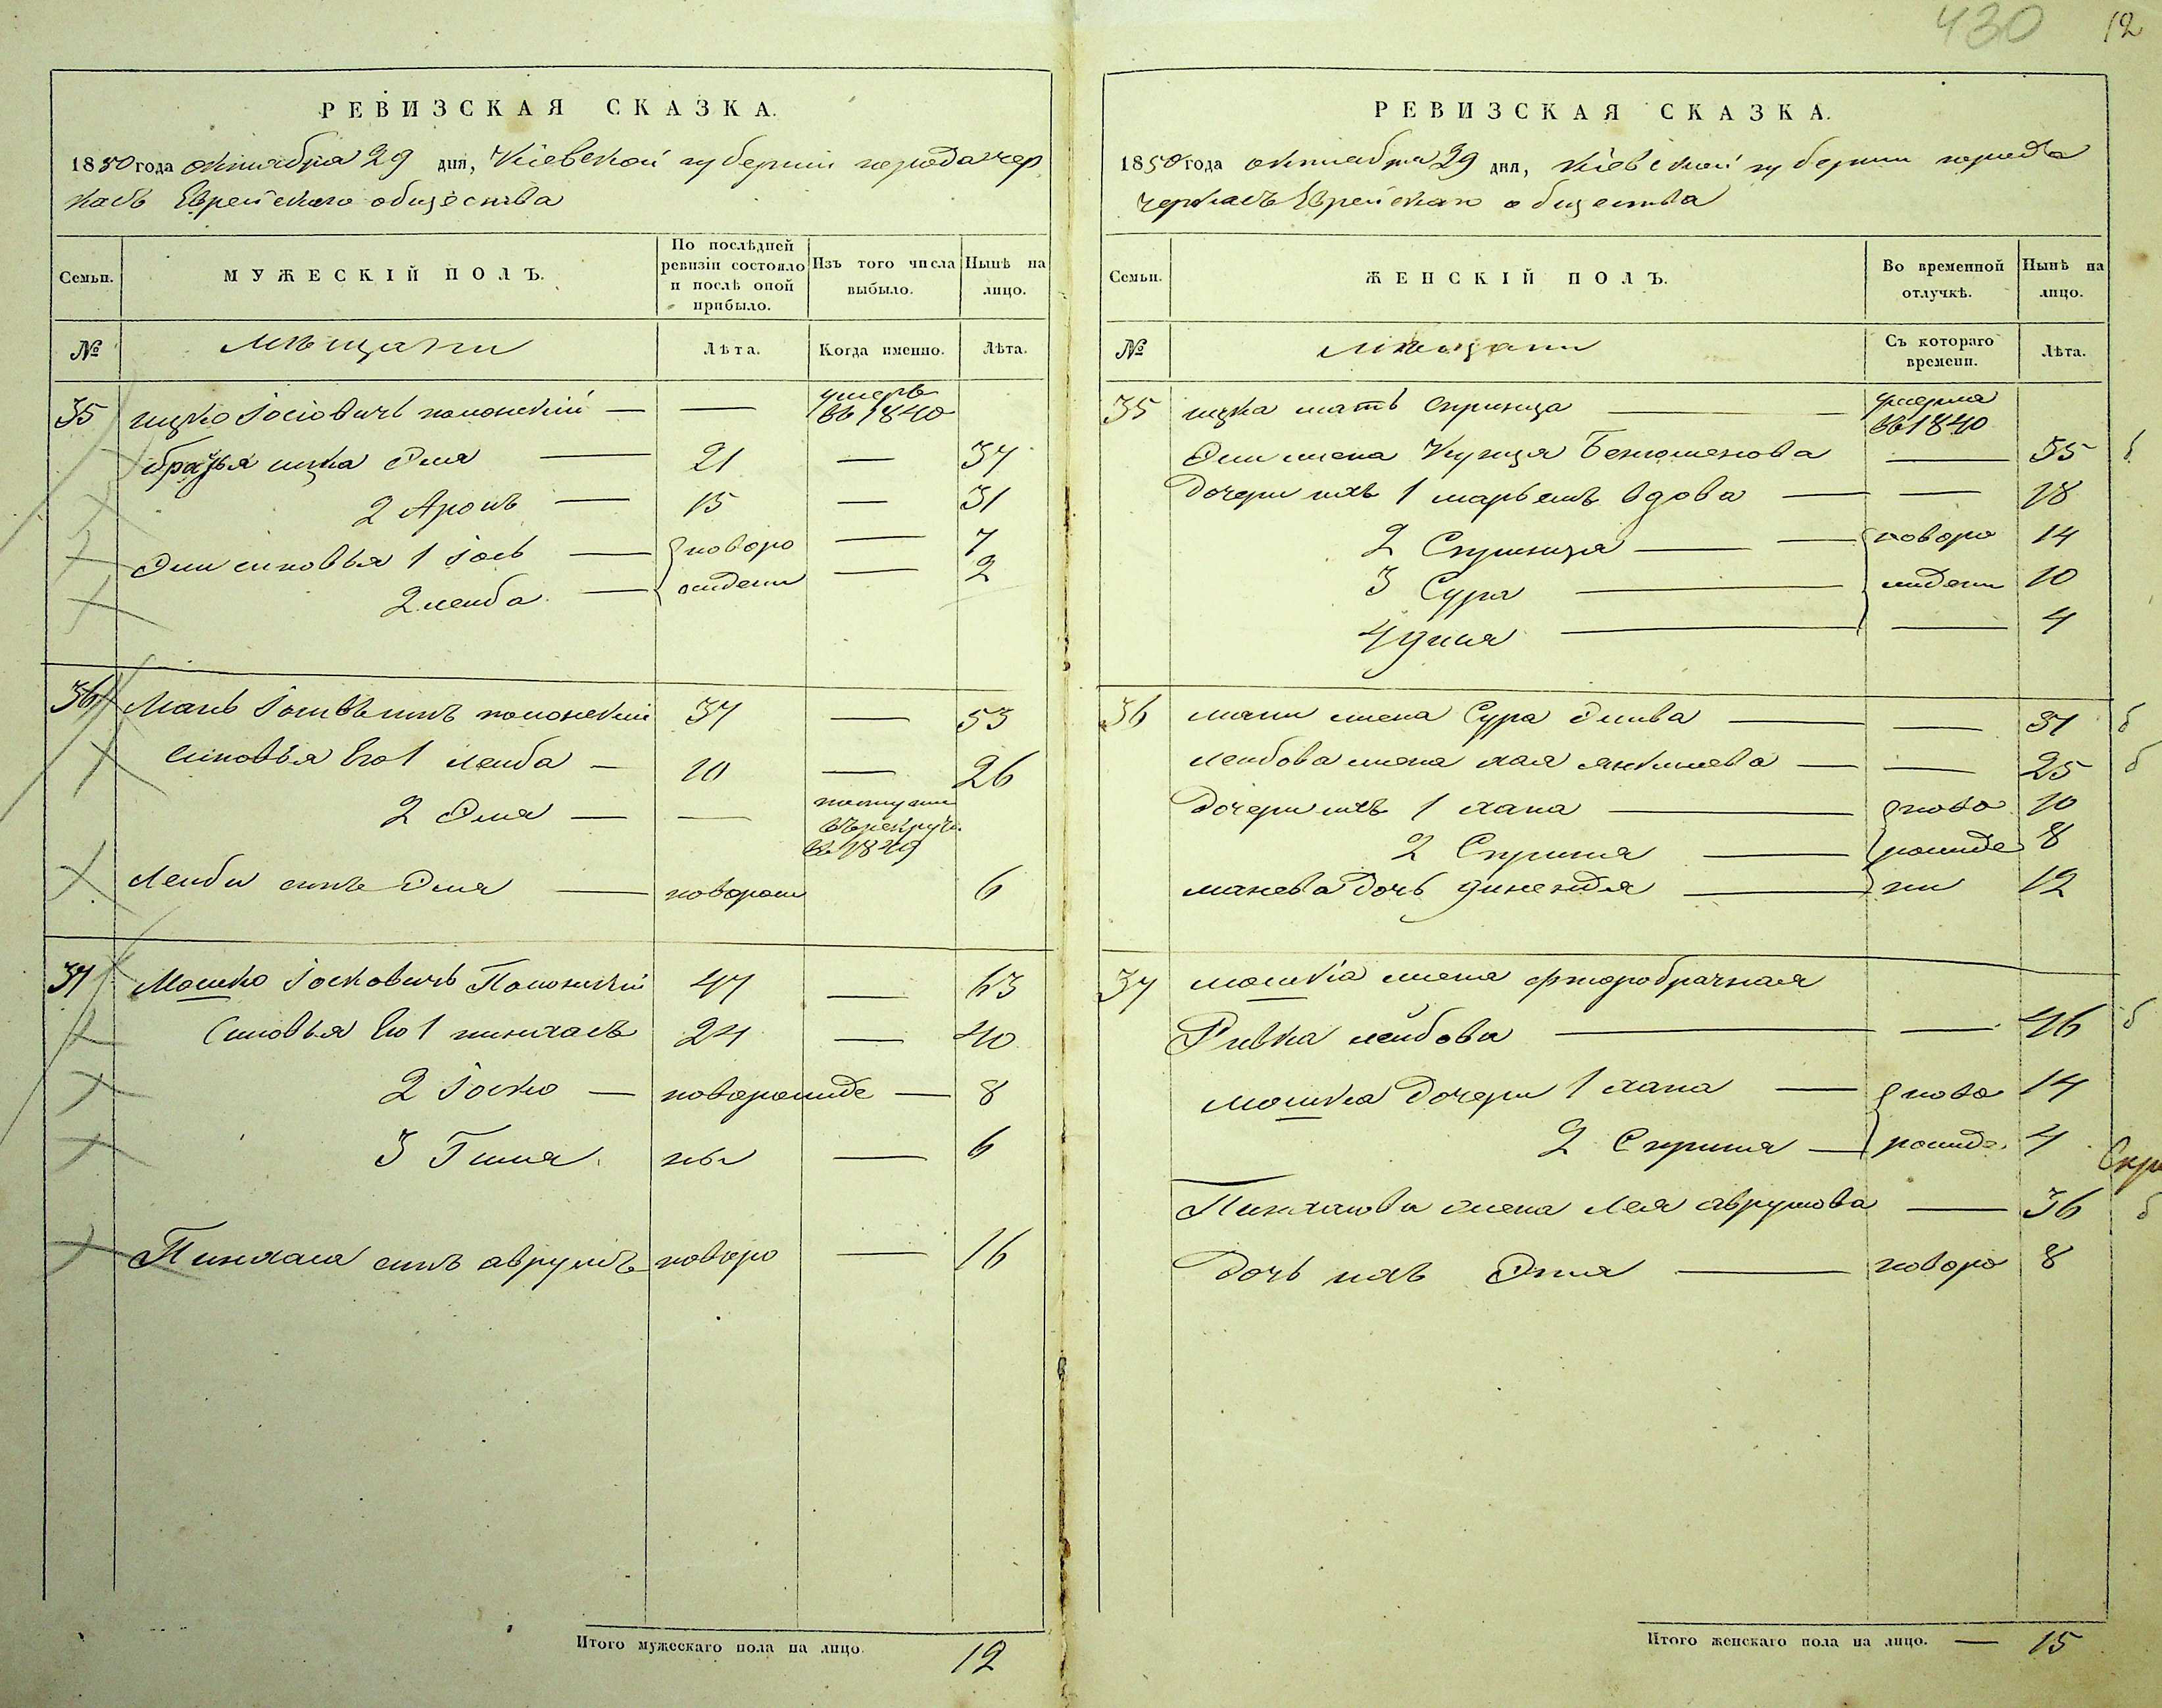 430 12
РЕВИЗСКАЯ СКАЗКА.
1850 года октября 29 дня, Кіевской губерніи города чер
касъ Еврейскаго общества
Семьи.
МУЖЕСКІЙ ПОЛЪ.
По послѣдней ревизіи состояло и послѣ оной прибыло.
Изъ того числа выбыло.
Нынѣ на лицо.
№ мѣщани Лѣта. Когда именно. Лѣта.
35 ицко Іосіовичъ — — умеръ въ 1840
братья ицка Эля — 21 — 37
2 Аронъ — 15 — 31
Эли синовья 1 Іось — новоро — 7
2 лейба — ждени — 2
36 Мань сынъ 37 — 53
Синовья его 1 лейба — 10 — 26
2 Эля — —
въ рекруты
въ 1849
Лейби синъ Эля — неворож 6
37 Мошко Іосковичъ 47 — 63
Синовья его 1 пинхасъ 24 — 40
2 Іосько — новорожде — 8
3 ны — 6
Пинхаса синъ аврумъ новоро — 16
Итого мужескаго пола на лицо. 12
РЕВИЗСКАЯ СКАЗКА.
1850 года октября 29 дня, Кіевской губерніи города
черкасъ Еврейскаго общества
Семьи.
ЖЕНСКІЙ ПОЛЪ.
Во временной отлучкѣ.
Нынѣ на лицо.
№ мѣщани Съ котораго времени. Лѣта.
35 ицка мать Спринца — умерла въ 1840
Эли жена — 55 б
Дочери ихъ 1 марьемъ вдова — — 18
2 Спринца — новоро 14
3 Сура — ждени 10
4 — — 4
36 мани жена Сура — — 51 б
лейбова жена хая янкилева — — 25 б
Дочери ихъ 1 хана — ново 10
2 Сприня — рожде 8
манева дочь — ни 12
37 мошкіа жена фторобрачная
Ривка лейбова — — 46 б
мошка дочери 1 хана — ново 14
2 Сприня — рожде 4
Пинхасови жена лея аврумова — 36 б
Дочь ихъ Этя — новоро 8
Итого женскаго пола на лицо. — 15